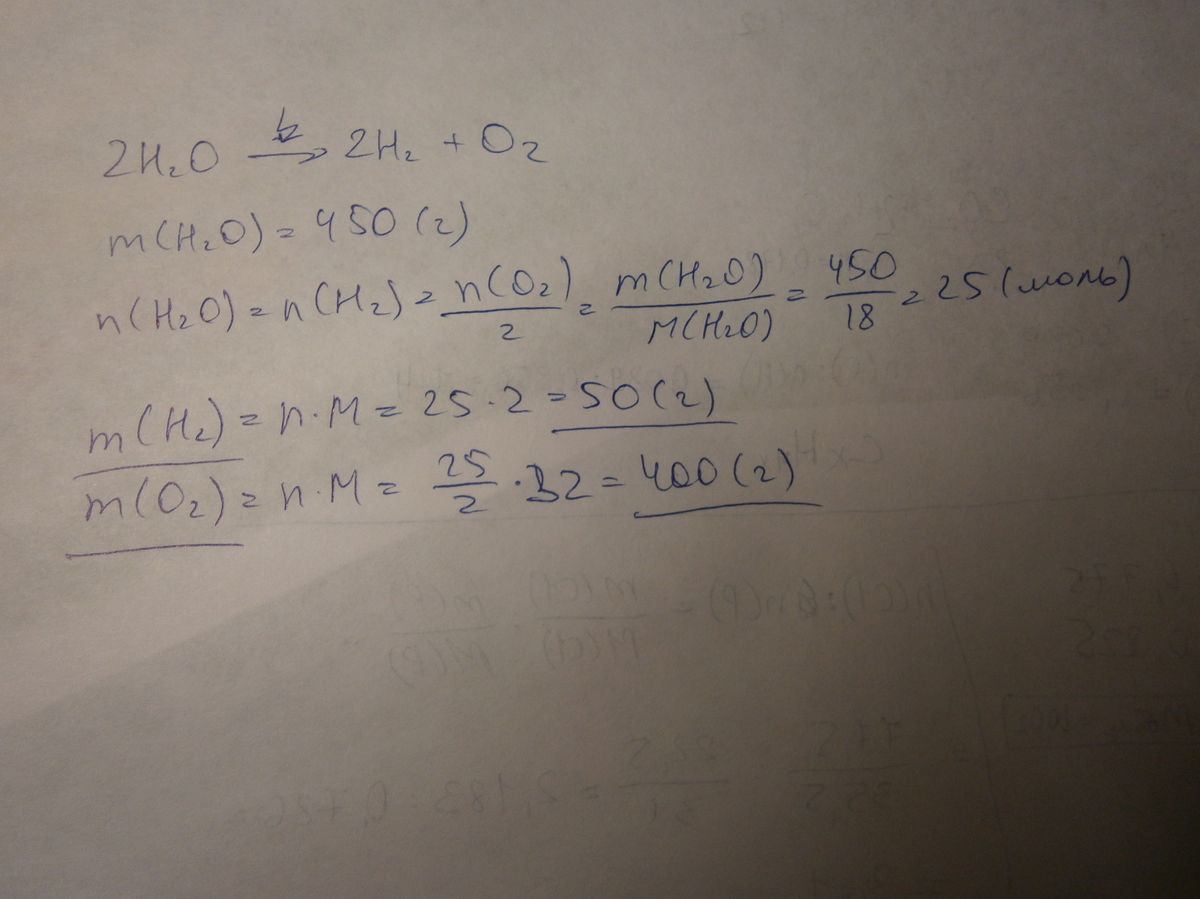 2H₂O →ᵗ 2H₂ + O₂
m(H₂O) = 450 (г)
n(H₂O) = n(H₂) = n(O₂)/2 = m(H₂O)/M(H₂O) = 450/18 = 25 (моль)
m(H₂) = n·M = 25·2 = 50 (г)
m(O₂) = n·M = 25/2 · 32 = 400 (г)